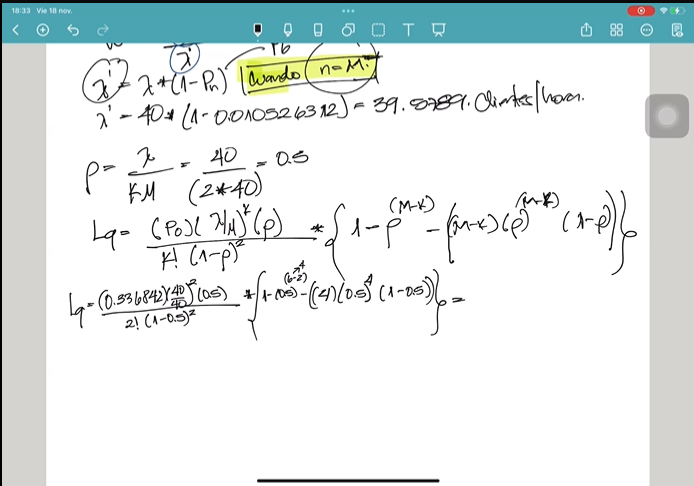 18:33 Vie 18 nov.
λ' = λ*(1-Pn) | Cuando (n=M.
λ' = 40*(1-0.010526312) = 39.5789. Clientes/hora.
ρ = λ/KM = 40/(2*40) = 0.5
Lq = (P0)(λ/M)^K (ρ) / K! (1-ρ)^2 * { 1-ρ^(M-K) - [(M-K)(ρ)^(M-K) (1-ρ)] }
Lq = (0.336842)(40/40)^2 (0.5) / 2! (1-0.5)^2 * { 1-(0.5)^(6-2) 4 - ((4)(0.5)^4 (1-0.5)) } =